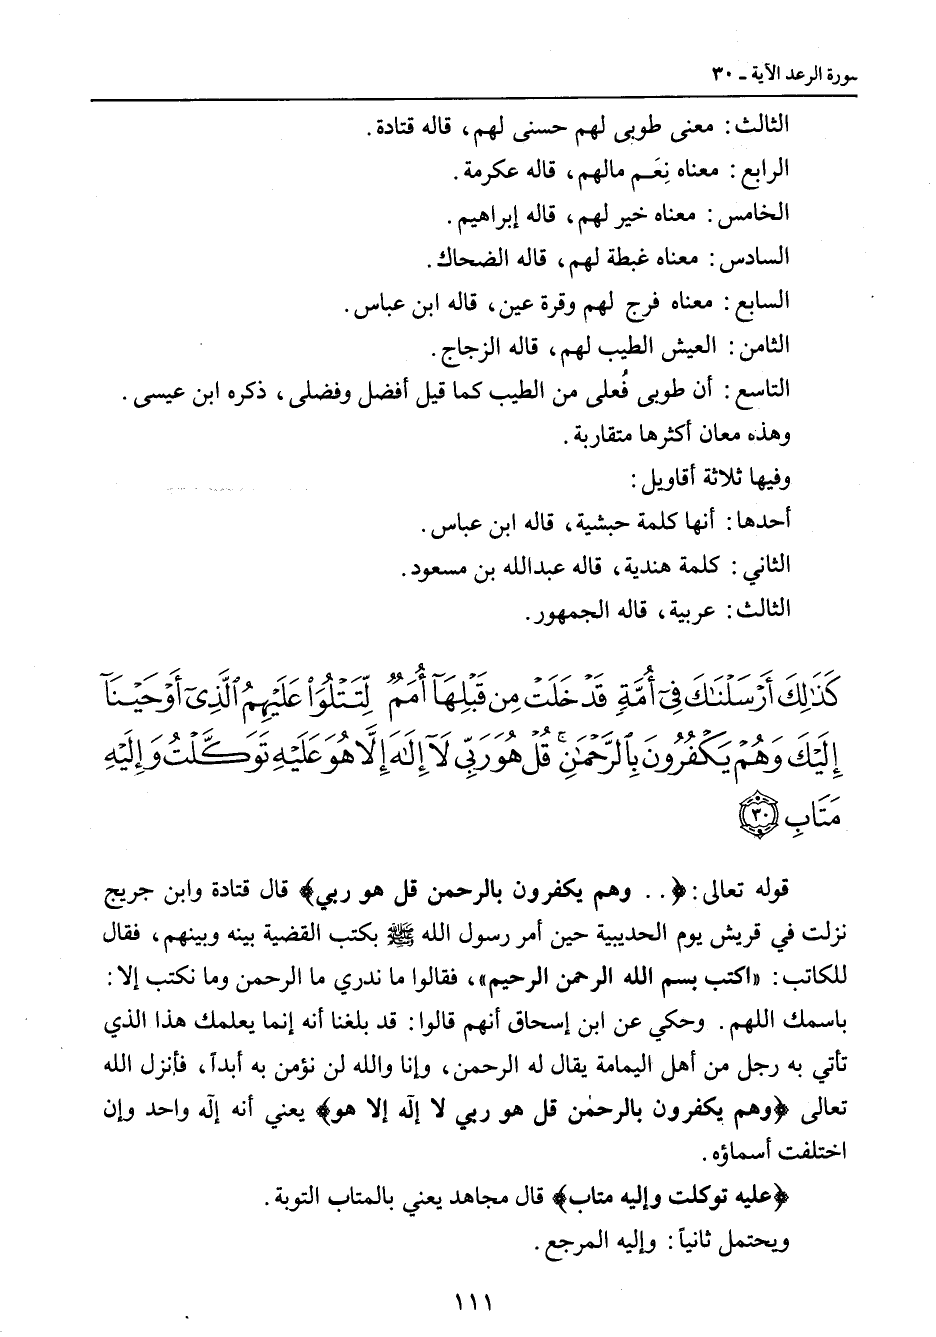 سورة الرعد الآية ـ ٣٠
الثالث: معنى طوبى لهم حسنى لهم، قاله قتادة.
الرابع: معناه نِعَـم مالهم، قاله عكرمة.
الخامس: معناه خير لهم، قاله إبراهيم.
السادس: معناه غبطة لهم، قاله الضحاك.
السابع: معناه فرح لهم وقرة عين، قاله ابن عباس.
الثامن: العيش الطيب لهم، قاله الزجاج.
التاسع: أن طوبى فُعلى من الطيب كما قيل أفضل وفضلى، ذكره ابن عيسى.
وهذه معان أكثرها متقاربة.
وفيها ثلاثة أقاويل:
أحدها: أنها كلمة حبشية، قاله ابن عباس.
الثاني: كلمة هندية، قاله عبدالله بن مسعود.
الثالث: عربية، قاله الجمهور.
كَذَٰلِكَ أَرْسَلْنَاكَ فِىٓ أُمَّةٍ قَدْ خَلَتْ مِن قَبْلِهَآ أُمَمٌ لِّتَتْلُوَا۟ عَلَيْهِمُ ٱلَّذِىٓ أَوْحَيْنَآ
إِلَيْكَ وَهُمْ يَكْفُرُونَ بِٱلرَّحْمَٰنِ ۚ قُلْ هُوَ رَبِّى لَآ إِلَٰهَ إِلَّا هُوَ عَلَيْهِ تَوَكَّلْتُ وَإِلَيْهِ
مَتَابِ ٣٠
قوله تعالى: ﴿.. وهم يكفرون بالرحمن قل هو ربي﴾ قال قتادة وابن جريج
نزلت في قريش يوم الحديبية حين أمر رسول الله ﷺ بكتب القضية بينه وبينهم، فقال
للكاتب: «اكتب بسم الله الرحمن الرحيم»، فقالوا ما ندري ما الرحمن وما نكتب إلا:
باسمك اللهم. وحكي عن ابن إسحاق أنهم قالوا: قد بلغنا أنه إنما يعلمك هذا الذي
تأتي به رجل من أهل اليمامة يقال له الرحمن، وإنا والله لن نؤمن به أبداً، فأنزل الله
تعالى ﴿وهم يكفرون بالرحمٰن قل هو ربي لا إلٰه إلا هو﴾ يعني أنه إلٰه واحد وإن
اختلفت أسماؤه.
﴿عليه توكلت وإليه متاب﴾ قال مجاهد يعني بالمتاب التوبة.
ويحتمل ثانياً: وإليه المرجع.
١١١